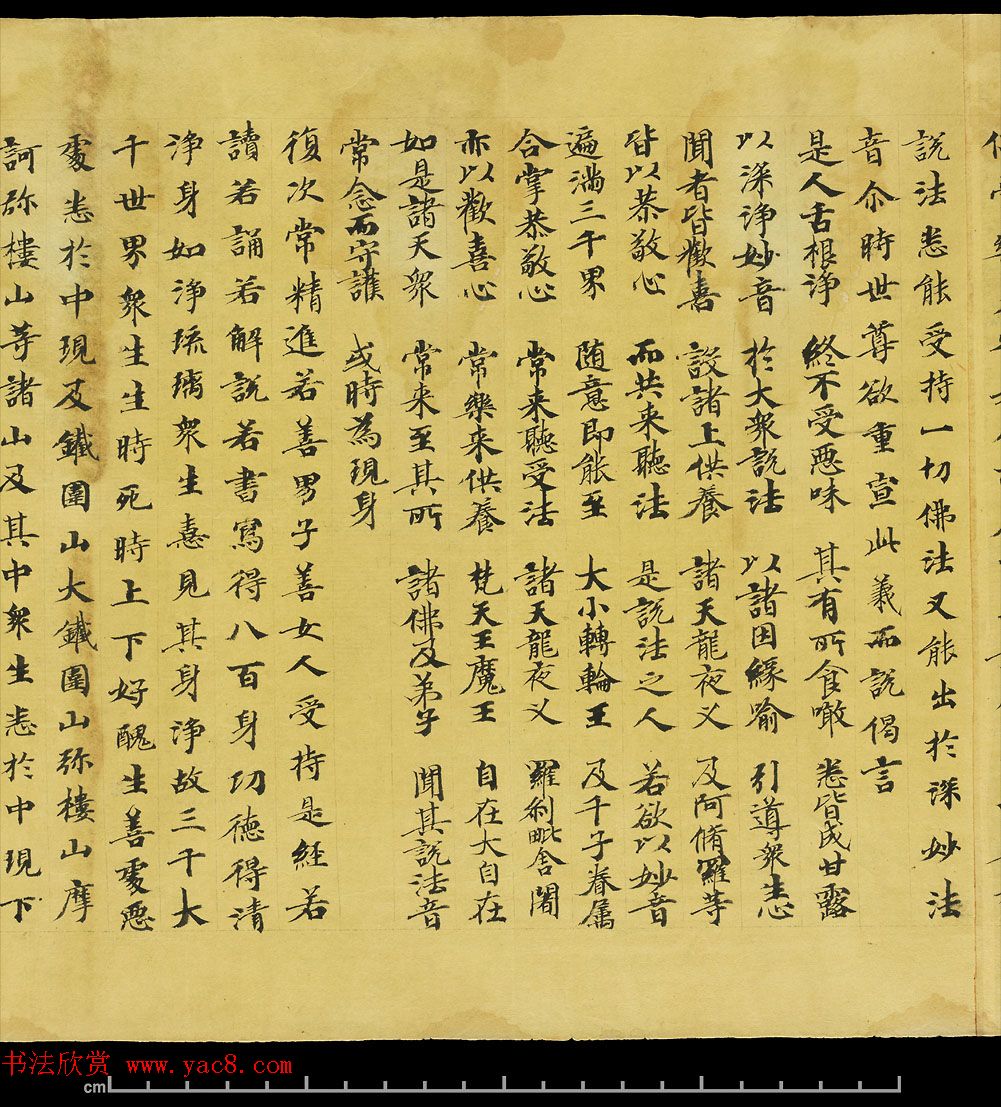 說法悉能受持一切佛法又能出於深妙法
音尒時世尊欲重宣此義而說偈言
是人舌根淨 終不受惡味 其有所食噉 悉皆成甘露
以深淨妙音 於大衆說法 以諸因緣喻 引導衆生心
聞者皆歡喜 設諸上供養 諸天龍夜义 及阿脩羅等
皆以恭敬心 而共来聽法 是說法之人 若欲以妙音
遍滿三千界 随意即能至 大小轉輪王 及千子眷属
合掌恭敬心 常来聽受法 諸天龍夜义 羅刹毗舍闍
亦以歡喜心 常樂来供養 梵天王魔王 自在大自在
如是諸天衆 常来至其所 諸佛及弟子 聞其說法音
常念而守護 或時為現身
復次常精進若善男子善女人受持是經若
讀若誦若解說若書寫得八百身功德得清
淨身如淨琉璃衆生憙見其身淨故三千大
千世界衆生生時死時上下好醜生善處惡
處悉於中現及鐵圍山大鐵圍山弥樓山摩
訶弥樓山等諸山及其中衆生悉於中現下
书法欣赏 www.yac8.com
cm